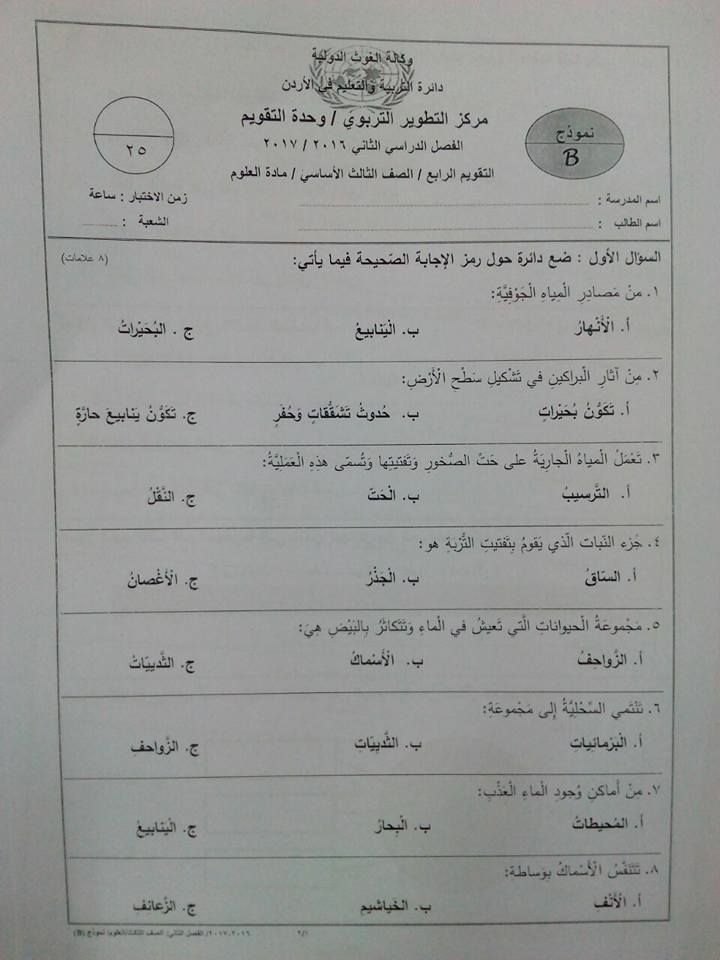 وكالة الغوث الدولية
دائرة التربية والتعليم في الأردن
مركز التطوير التربوي / وحدة التقويم
الفصل الدراسي الثاني ٢٠١٦ / ٢٠١٧
التقويم الرابع / الصف الثالث الأساسي / مادة العلوم
نموذج
B
٢٥
زمن الاختبار : ساعة
اسم المدرسة :
اسم الطالب :
الشعبة :
السؤال الأول : ضع دائرة حول رمز الإجابة الصّحيحة فيما يأتي: (٨ علامات)
١. مِنْ مَصَادِرِ الْمِياهِ الْجَوْفِيَّةِ:
أ. الْأَنْهارُ ب. الْيَنابيعُ ج . البُحَيْراتُ
٢. مِنْ آثارِ الْبَراكينِ في تَشْكيلِ سَطْحِ الْأَرْضِ:
أ. تَكَوُّنُ بُحَيْراتٍ ب. حُدوثُ تَشَقُّقاتٍ وَحُفَرٍ ج. تَكَوُّنُ يَنابيعَ حارَّةٍ
٣. تَعْمَلُ الْمياهُ الْجارِيَةُ على حَتِّ الصُّخورِ وَتَفتيتِها وَتُسمّى هذِهِ الْعَمَلِيَّةُ:
أ. التَّرسيبُ ب. الْحَتّ ج. النَّقْلُ
٤. جُزء النّبات الّذي يَقومُ بِتَفتيتِ التُّرْبَةِ هو:
أ. السّاقُ ب. الْجَذْرُ ج. الْأَغْصانُ
٥. مَجْموعَةُ الْحيواناتِ الَّتي تَعيشُ في الْماءِ وَتَتَكاثَرُ بِالبَيْضِ هِيَ:
أ. الزَّواحِفُ ب. الْأَسْماكُ ج. الثَّدييّاتُ
٦. تَنْتَمي السِّحْلِيَّةُ إِلى مَجْموعَةِ:
أ. الْبَرْمائِياتِ ب. الثَّدْيِيّاتِ ج. الزَّواحفِ
٧. مِنْ أَماكِنِ وُجودِ الْماءِ الْعَذْبِ:
أ. المُحيطاتُ ب. الْبِحارُ ج. الْيَنابيعُ
٨. تَتَنَفَّسُ الْأَسْماكُ بِوَساطة:
أ. الْأَنْفِ ب. الخياشيمِ ج. الزَّعانف
٢/١
٢٠١٧-٢٠١٦/ الفصل الثاني/ الصف الثالث/العلوم/ نموذج (B)